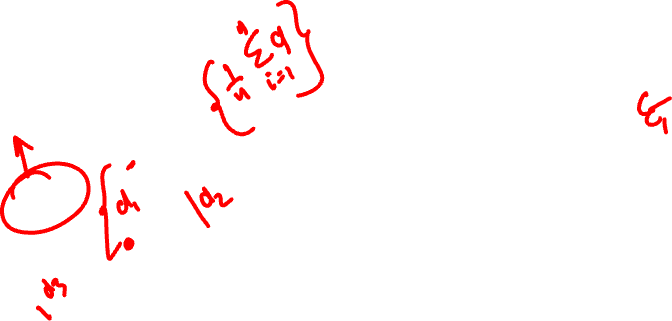 {1/n \sum_{i=1}^{n} a}
d1
|d2
|d3